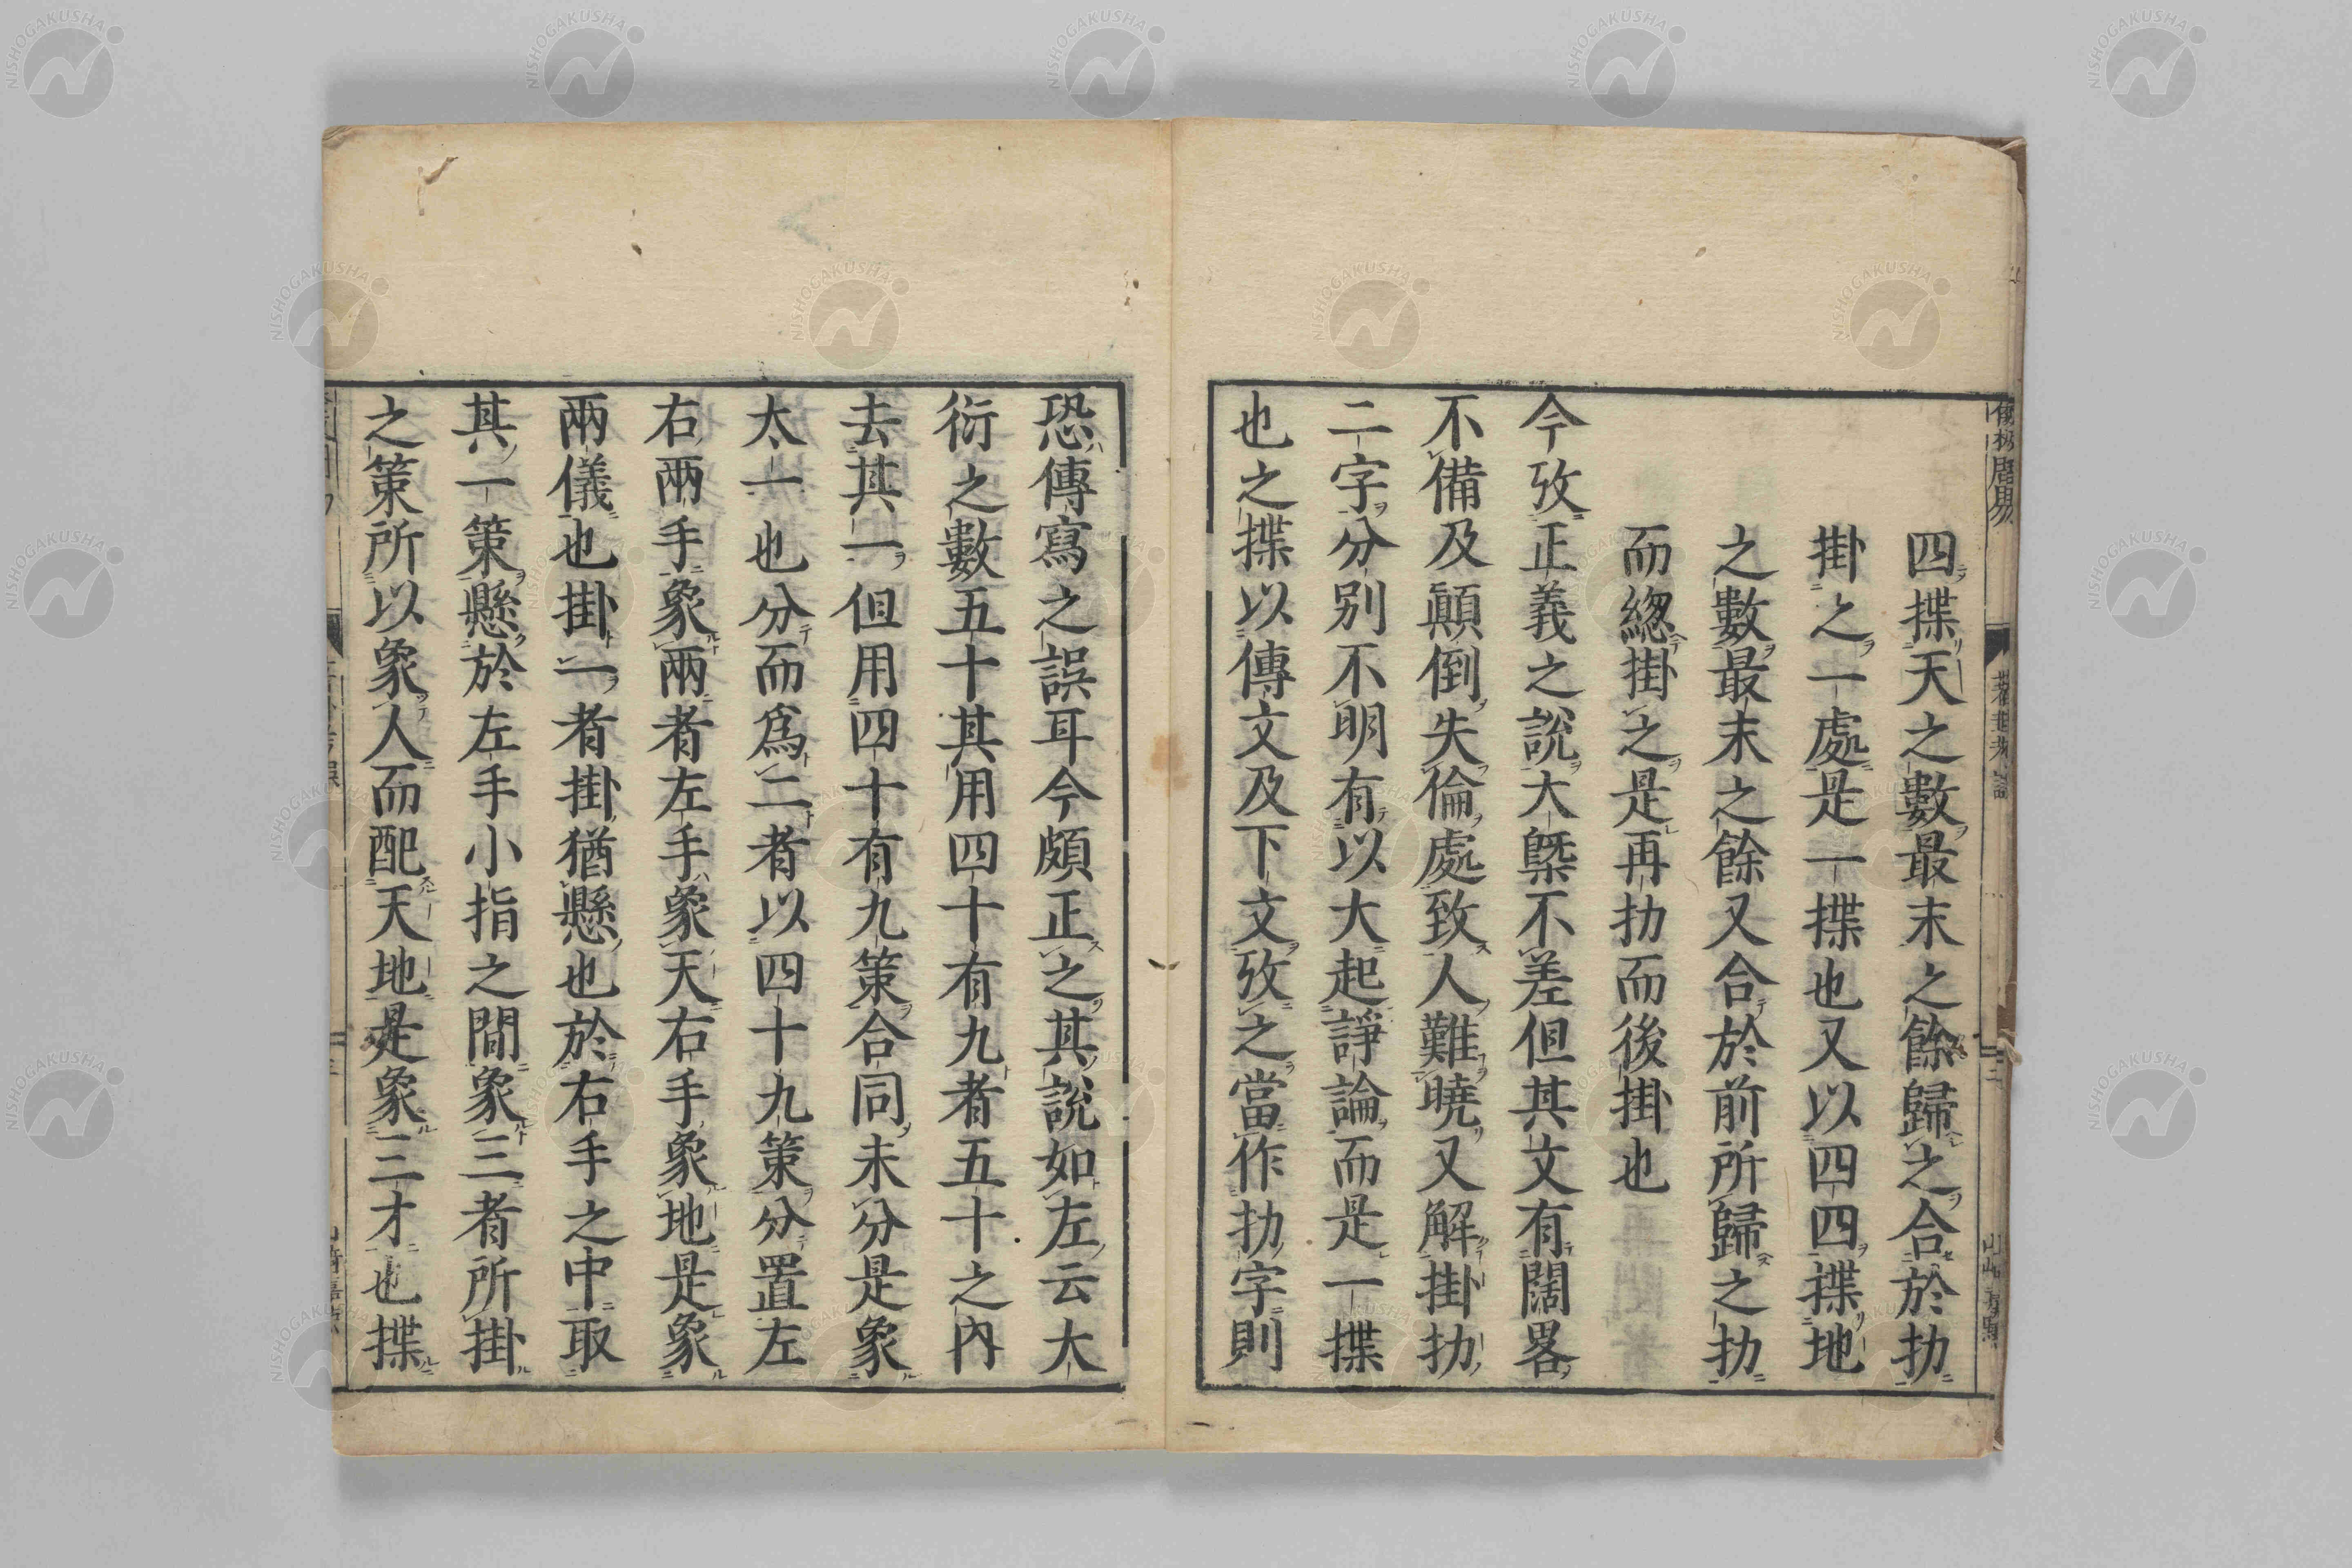 四揲天之數最末之餘歸之合於扐
掛之一處是一揲也又以四四揲地
之數最末之餘又合於前所歸之扐
而總掛之是再扐而後掛也
今攷正義之說大槩不差但其文有闊畧
不備及顚倒失倫處致人難曉又解掛扐
二字分別不明有以大起諍論而是一揲
也之揲以傳文及下文攷之當作扐字則
恐傳寫之誤耳今頗正之其說如左云大
衍之數五十其用四十有九者五十之內
去其一但用四十有九策合同未分是象
太一也分而爲二者以四十九策分置左
右兩手象兩者左手象天右手象地是象
兩儀也掛一者掛猶懸也於右手之中取
其一策懸於左手小指之間象三者所掛
之策所以象人而配天地是象三才也揲
NISHOGAKUSHA